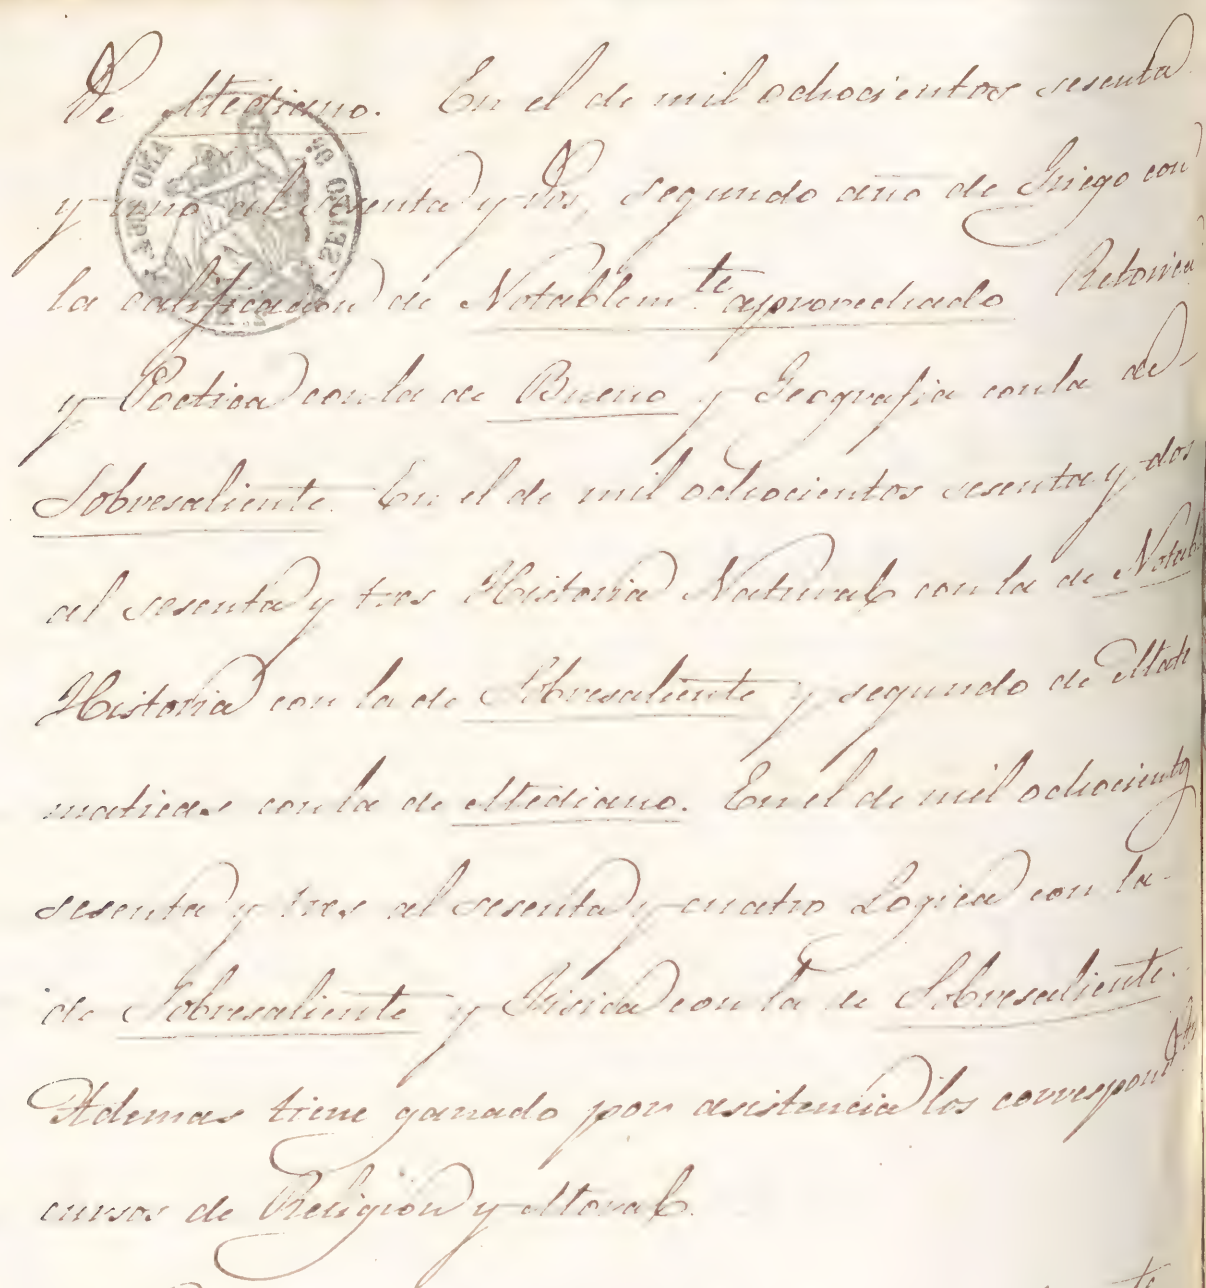 de Mediano. En el de mil ochocientos sesenta
y uno al sesenta y dos, segundo año de Griego con
la calificacion de Notablem.te aprovechado Retorica
y Poetica con la de Bueno y Geografia con la de
Sobresaliente. En el de mil ochocientos sesenta y dos
al sesenta y tres Historia Natural con la de Notabl
Historia con la de Sobresaliente y segundo de Mate
maticas con la de Mediano. En el de mil ochocientos
sesenta y tres al sesenta y cuatro Logica con la
de Sobresaliente y Fisica con la de Sobresaliente.
Ademas tiene ganado por asistencia los correspond
cursos de Religion y Moral.